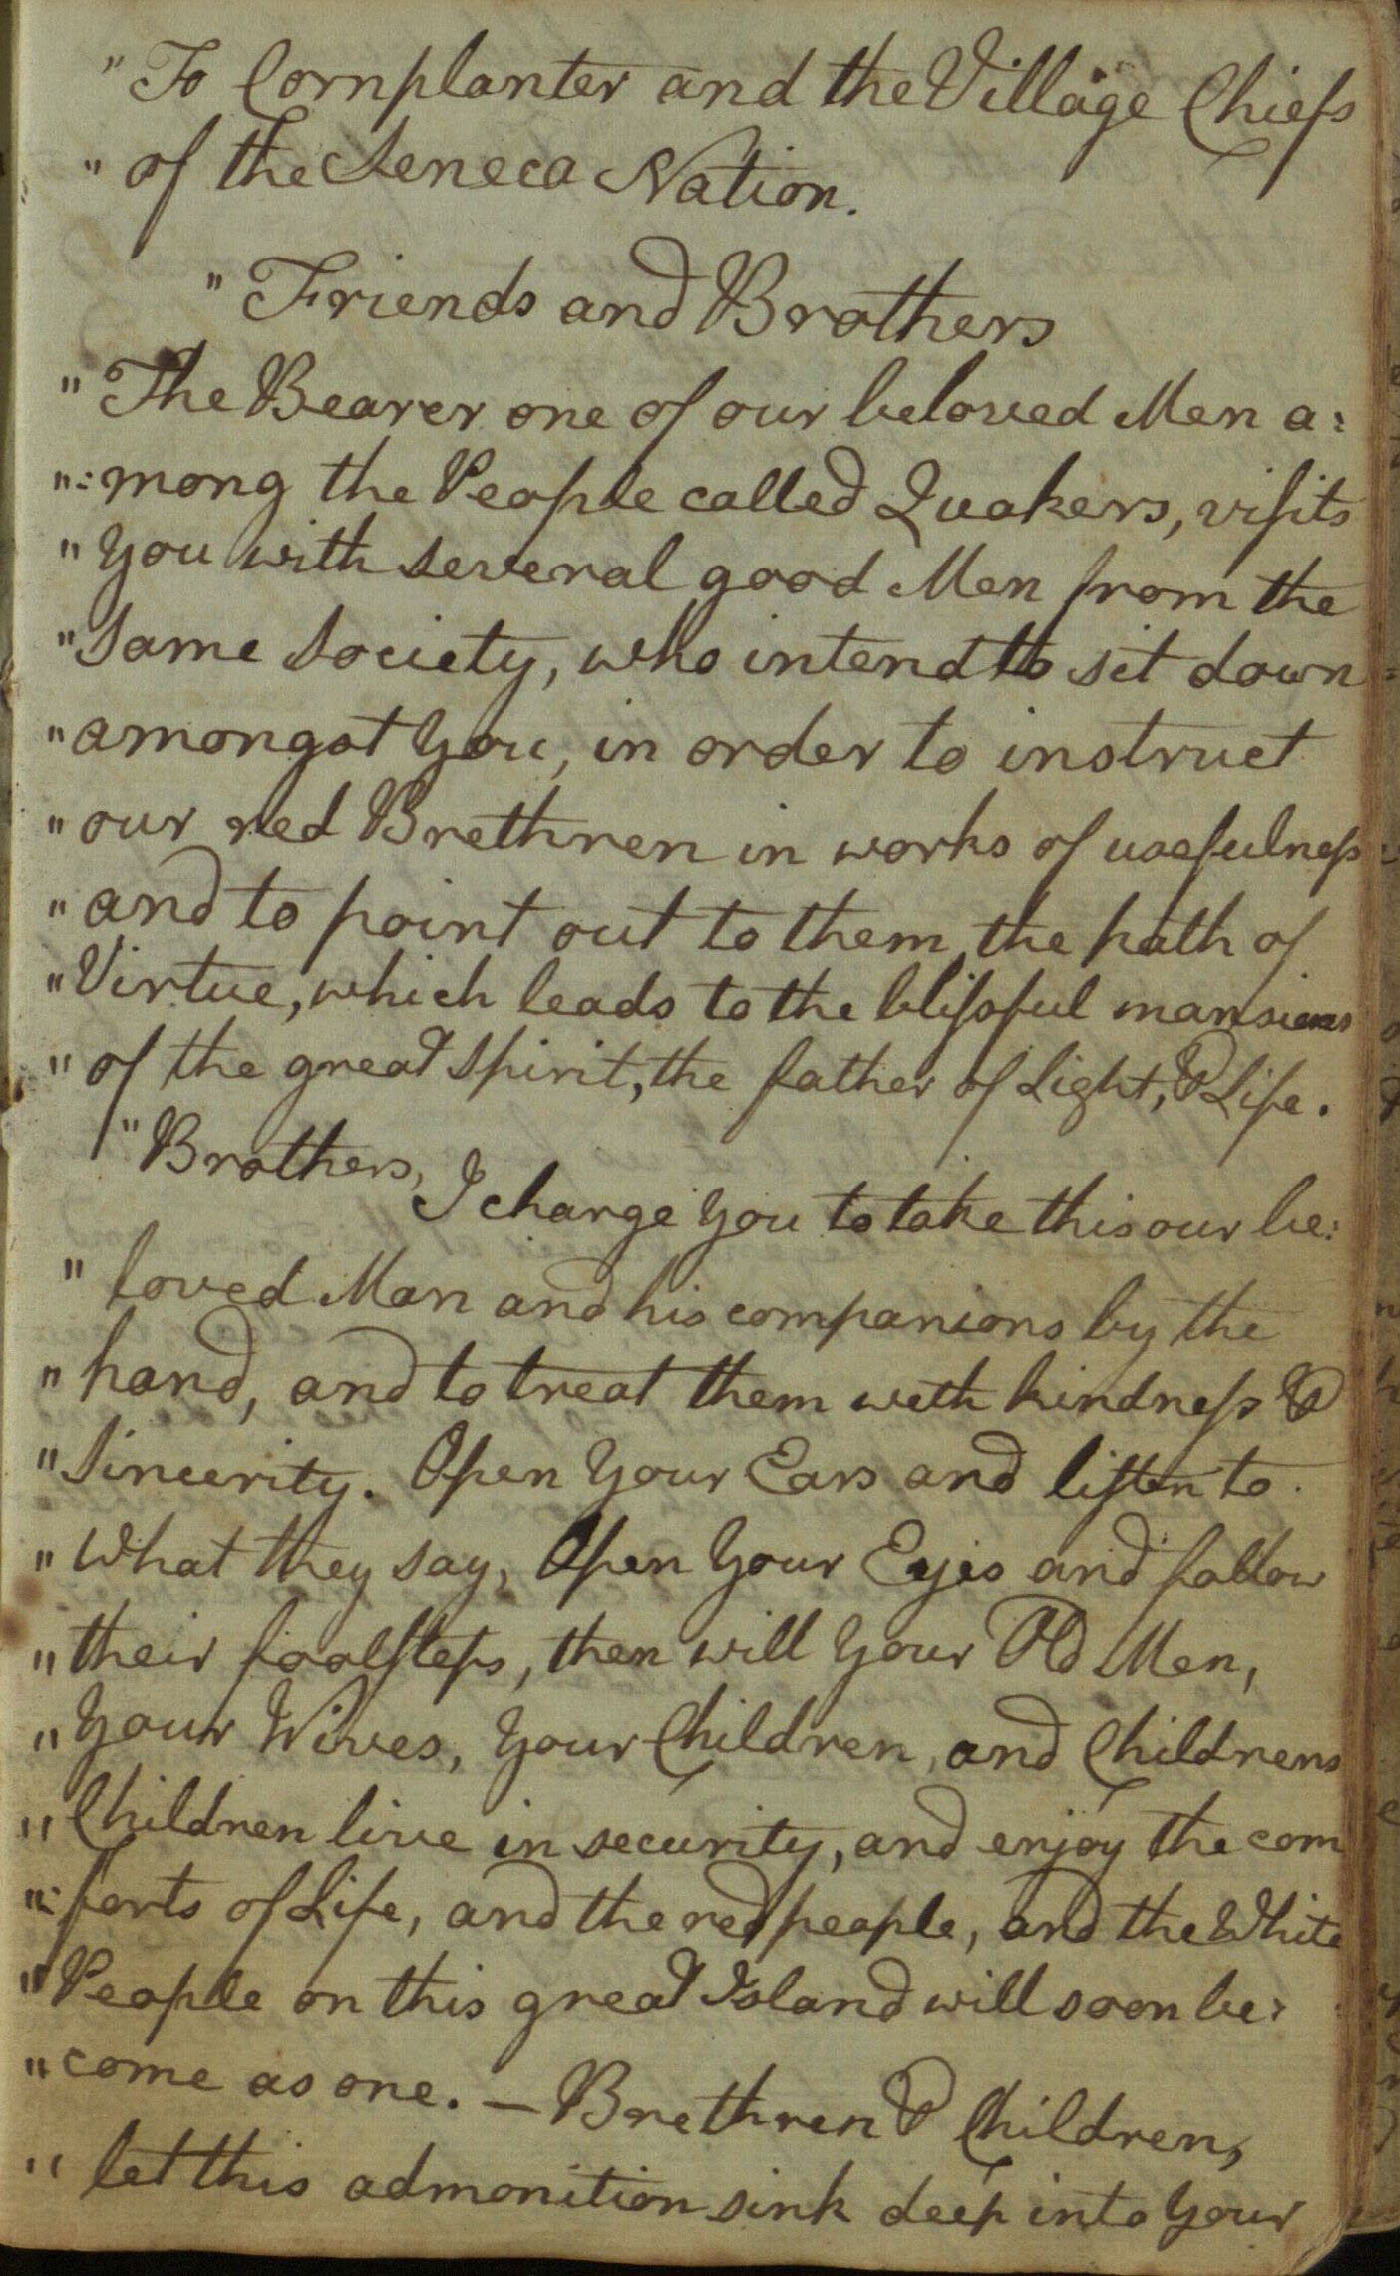 " To Cornplanter and the Village Chiefs
" of the Seneca Nation.
" Friends and Brothers
" The Bearer one of our beloved Men a:
":mong the People called Quakers, visits
" You with several good Men from the
" Same Society, who intend to sit down
" amongst You, in order to instruct
" our red Brethren in works of usefulness
" and to point out to them, the path of
" Virtue, which leads to the blissful mansions
" of the great Spirit, the father of Light, & Life.
" Brothers, I charge You to take this our be:
" loved Man and his companions by the
" hand, and to treat them with kindness &
" Sincerity. Open Your Ears and listen to
" What they say, Open Your Eyes and follow
" their footsteps, then will Your Old Men,
" Your Wives, Your Children, and Childrens
" Children live in security, and enjoy the com
":forts of Life, and the red people, and the White
" People on this great Island will soon be:
" come as one. — Brethren & Children,
" let this admonition sink deep into Your